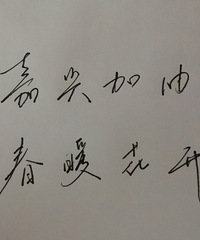 嘉尖加油
春暖花开